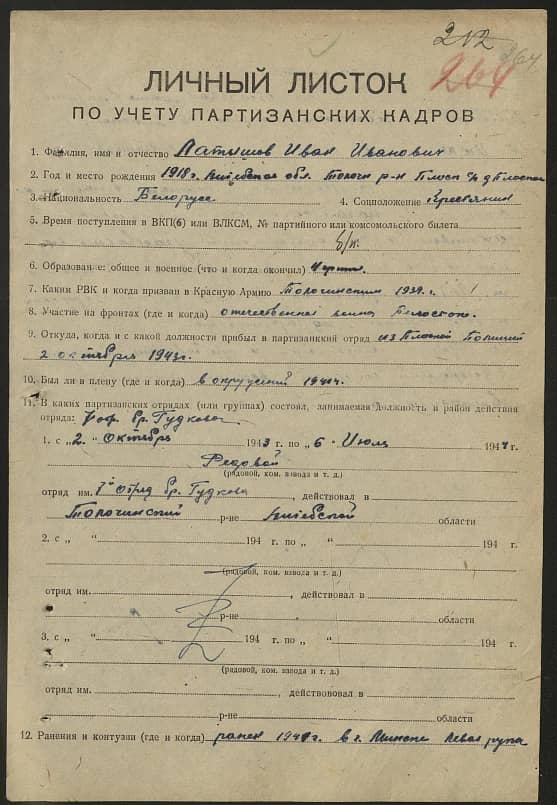 212
264
264
ЛИЧНЫЙ ЛИСТОК
ПО УЧЕТУ ПАРТИЗАНСКИХ КАДРОВ
1. Фамилия, имя и отчество Латышов Иван Иванович
2. Год и место рождения 1918 г. Витебская обл. Толочи р-н Плоск с/с д Плоское
3. Национальность Белорусс 4. Соцположение Крестьянин
5. Время поступления в ВКП(б) или ВЛКСМ, № партийного или комсомольского билета
б/п.
6. Образование: общее и военное (что и когда окончил)
7. Каким РВК и когда призван в Красную Армию Толочинским 1939 г.
8. Участие на фронтах (где и когда) отечественной война Белосток.
9. Откуда, когда и с какой должности прибыл в партизанкий отряд из Полиции
2 октября 1943 г.
10. Был ли в плену (где и когда) в 1941 г.
11. В каких партизанских отрядах (или группах) состоял, занимаемая должность и район действия
отряда: бр. Гудкова.
1. с „2„ Октябрь 1943 г. по „6 - Июль 1944 г.
Редовой
(рядовой, ком. взвода и т. д.)
отряд им. 7й отряд бр. Гудкова, действовал в
Толочинский р-не Витебской области
2. с „ “ 194 г. по „ “ 194 г.
(рядовой, ком. взвода и т. д.)
отряд им. , действовал в
р-не области
3. с „ “ 194 г. по „ “ 194 г.
(рядовой, ком. взвода и т. д.)
отряд им. , действововал в
р-не области
12. Ранения и контузии (где и когда) ранен 1941 г. в г. Минске левая рука